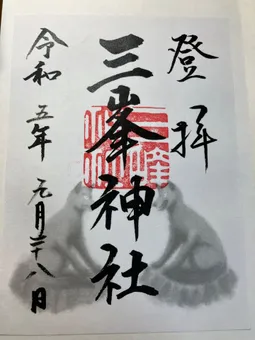 登拝
三峯神社
令和五年元月二十八日